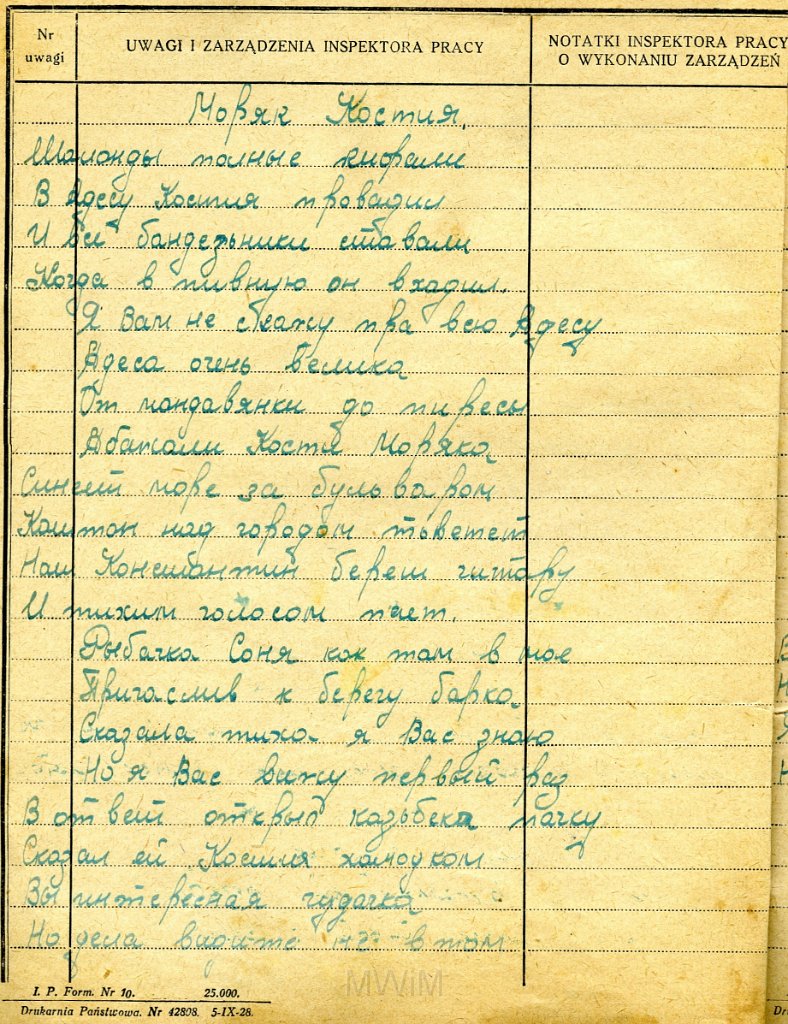 Nr uwagi
UWAGI I ZARZĄDZENIA INSPEKTORA PRACY
NOTATKI INSPEKTORA PRACY
O WYKONANIU ZARZĄDZEŃ
Моряк Костия,
Шаланды полные кнфали
В Адесу Костия провадил
И всё бандезьники ставали
Когда в пивную он входил.
Я Вам не скажу пра всю Адесу
Адеса очень велика
От молдавянки до пиресы
Абажали Костя Моряка
Синеет море за бульваром
Каштан над городом тьветет
Наш Константин берет гитару
И тихим голосом пает.
Рыбачка Соня как там в мае
Пригаслив к берегу барка
Сказала тиха я Вас знаю
Но я Вас вижу первый раз
В ответ открыл казьбека пачку
Сказал ей Костия халодком
Вы интересная чудачка
Но дела видите не в том
I. P. Form. Nr 10. 25.000.
Drukarnia Państwowa. Nr 42898. 5-IX-28.
MWiM